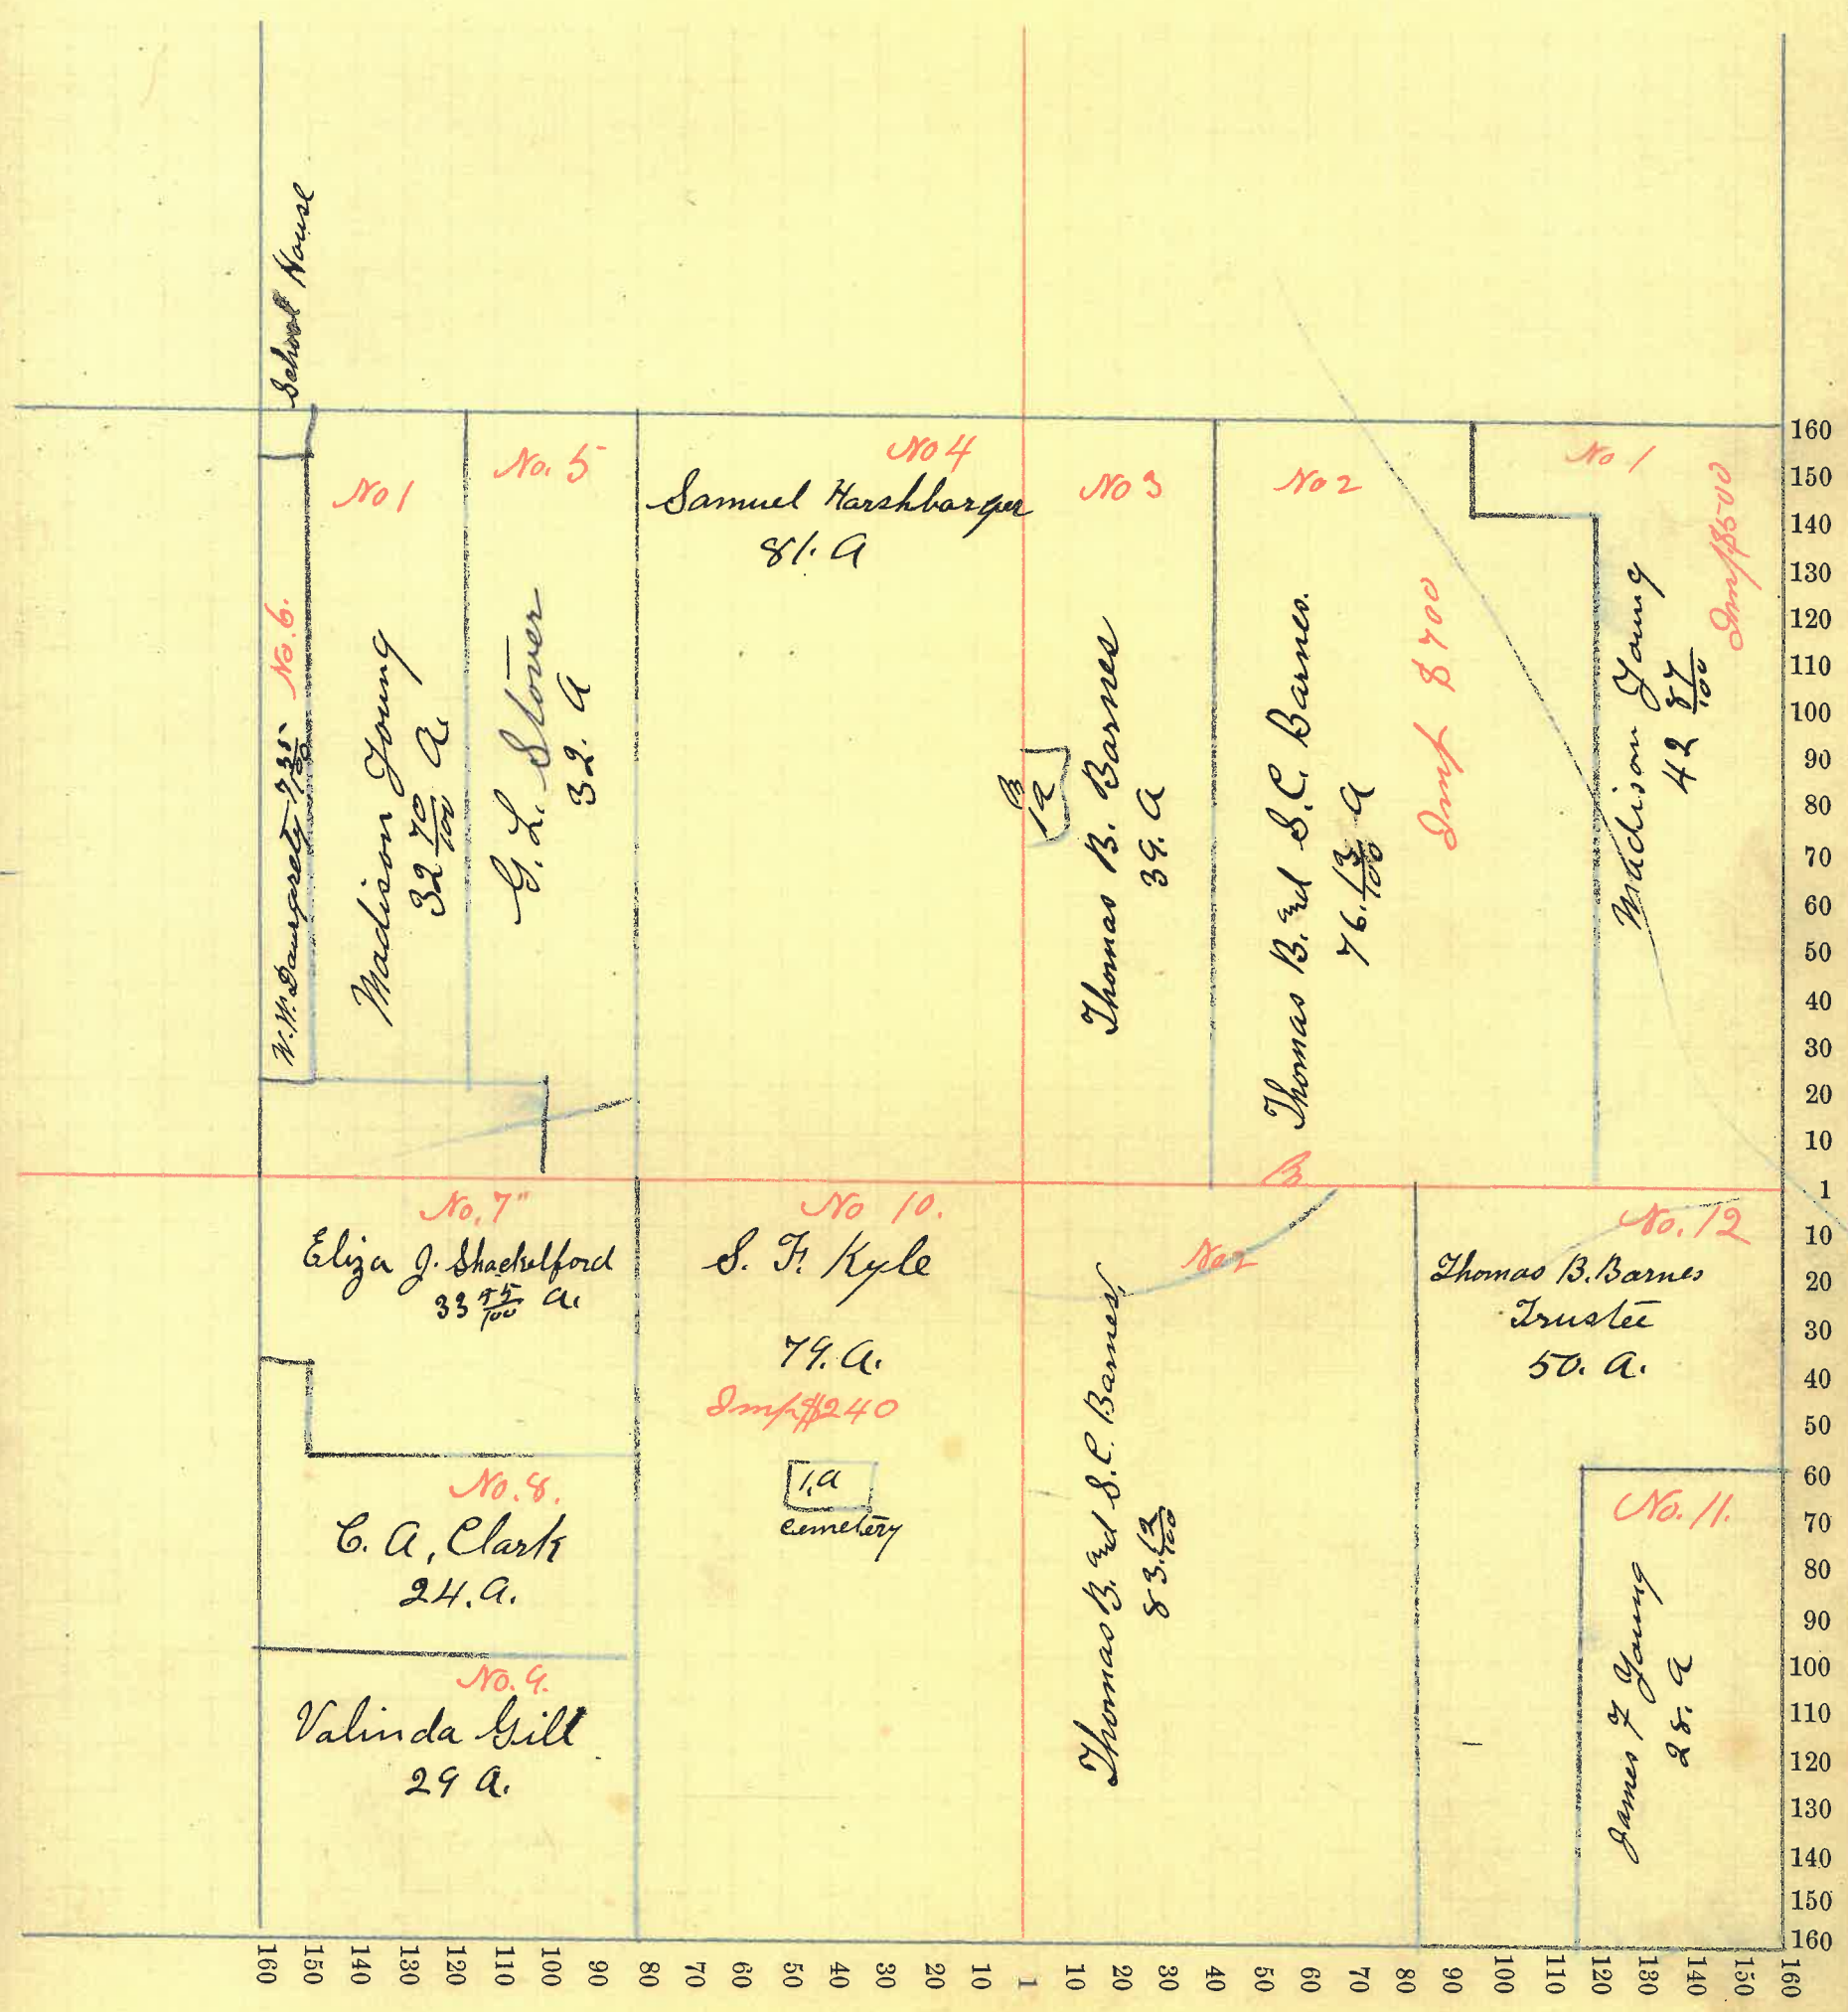 School House
No. 6.
W. W. Daugherty 7 35/100
No 1
Madison Young
32 70/100 A.
No. 5
G. L. Stover
32. A
No 4
Samuel Harshbarger
81. A
No 3
B
1a
Thomas B. Barnes
39. A
No 2
Thomas B. and S. C. Barnes.
76. 13/100 A
Imp $700
No 1
Imp $500
Madison Young
42 87/100
B
No. 7"
Eliza J. Shackelford
33 45/100 A.
No. 8.
C. A. Clark
24. A.
No. 9.
Valinda Gill
29 A.
No 10.
S. F. Kyle
79. A.
Imp $240
1, a
cemetery
No 2
Thomas B. and S. C. Barnes
83. 13/100
No. 12
Thomas B. Barnes
Trustee
50. A.
No. 11.
James F Young
28. A
160
150
140
130
120
110
100
90
80
70
60
50
40
30
20
10
1
10
20
30
40
50
60
70
80
90
100
110
120
130
140
150
160
160 150 140 130 120 110 100 90 80 70 60 50 40 30 20 10 1 10 20 30 40 50 60 70 80 90 100 110 120 130 140 150 160